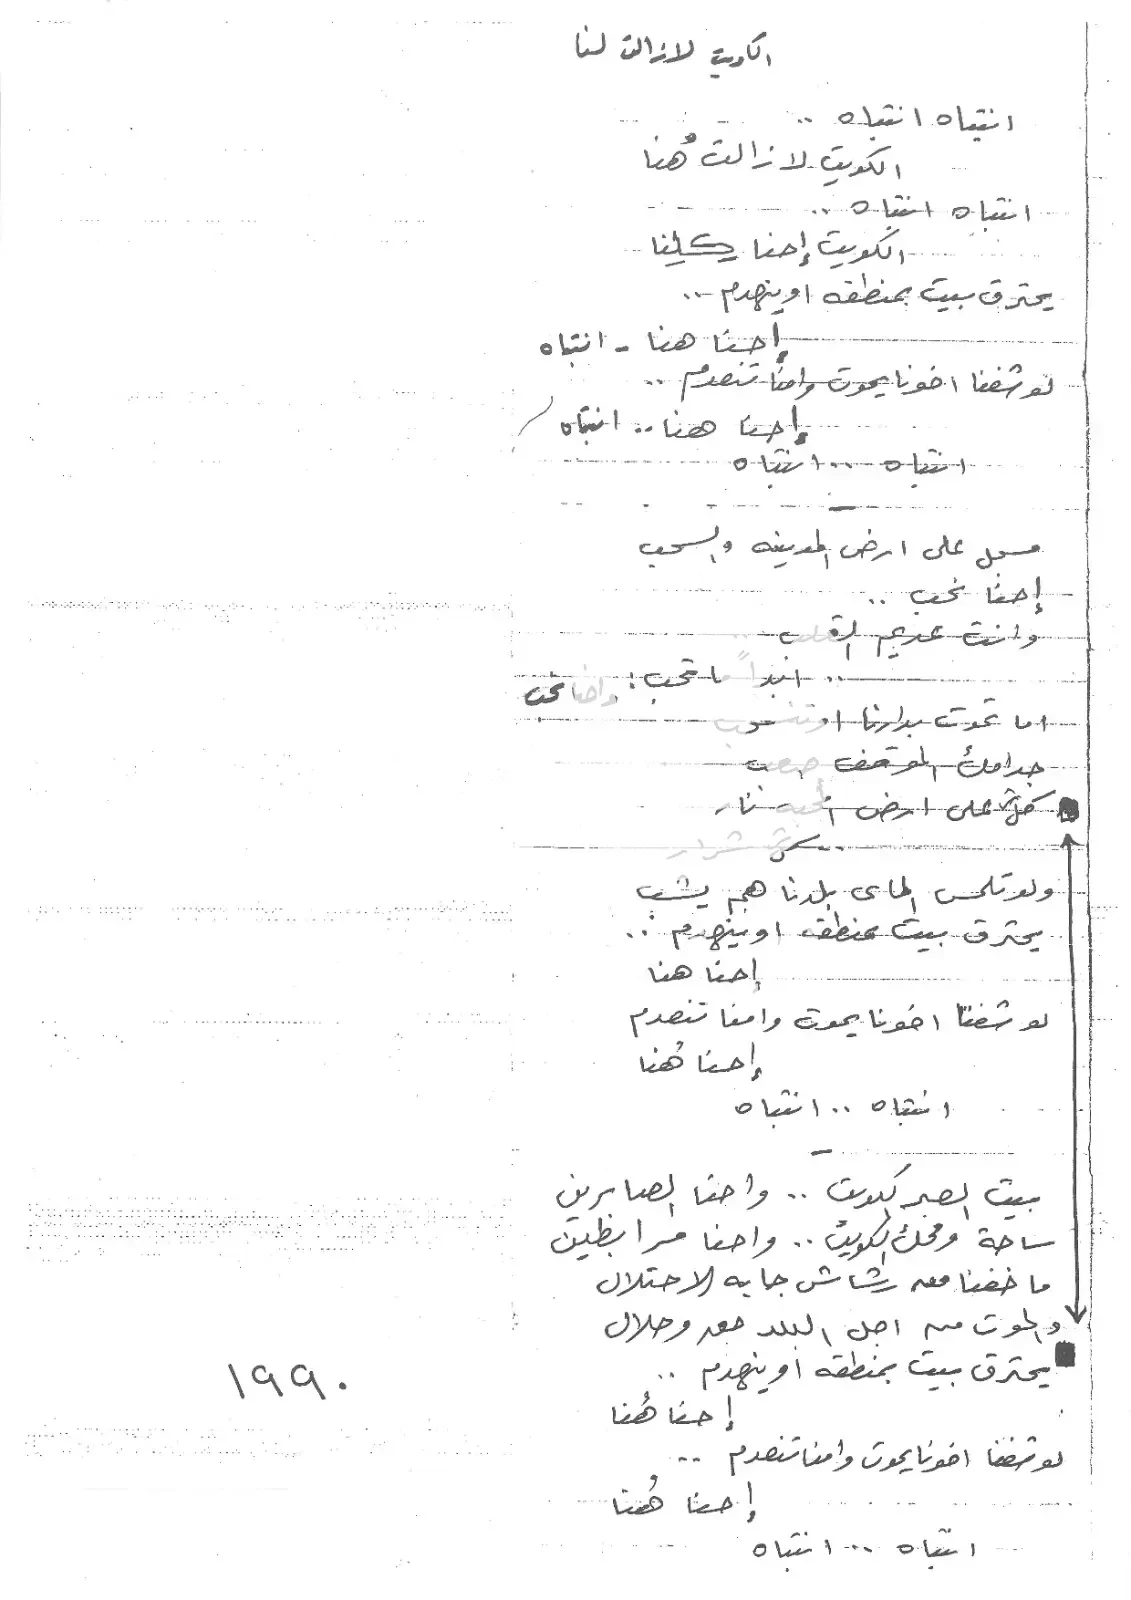 الكويت لازالت لنا
انتباه انتباه ..
الكويت لازالت هُنا
انتباه انتباه ..
الكويت إحنا كلنا
يحترق بيت بمنطقه اوينهدم ..
إحنا هنا - انتباه
لو شفنا اخونا يموت وامنا تنصدم ..
إحنا هنا .. انتباه
انتباه .. انتباه
سجل على ارض المدينه والسحب
إحنا نحب ..
وانت عديم القلب ..
.. ابداً ما تحب! واحنا نحب
اما تموت بدارنا او تنسحب
جدامك الموقف صعب
كلش على ارض المحبه نار
.. شرار
ولو تلمس الماى بلدنا هم يشب
يحترق بيت بمنطقه اوينهدم ..
إحنا هنا
لو شفنا اخونا يموت وامنا تنصدم
إحنا هُنا
انتباه .. انتباه
بيت الصبر كويت .. واحنا الصابرين
ساحة ومحك الكويت .. واحنا مرابطين
ما خفنا من رشاش جابه الاحتلال
والموت من اجل البلد حق وحلال
يحترق بيت بمنطقه اوينهدم ..
إحنا هُنا
لو شفنا اخونا يموت وامنا تنصدم ..
إحنا هُنا
انتباه .. انتباه
١٩٩٠